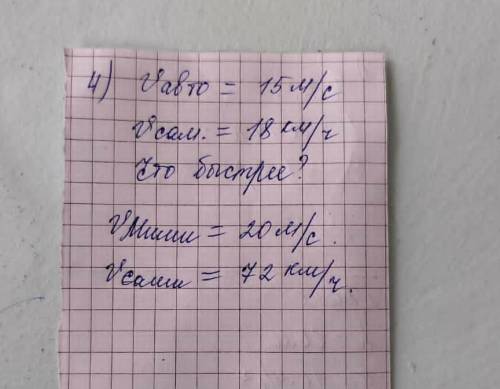 4) Vавто = 15 м/с
Vсам. = 18 км/ч
Что быстрее?
VМиши = 20 м/с.
Vсаши = 72 км/ч.